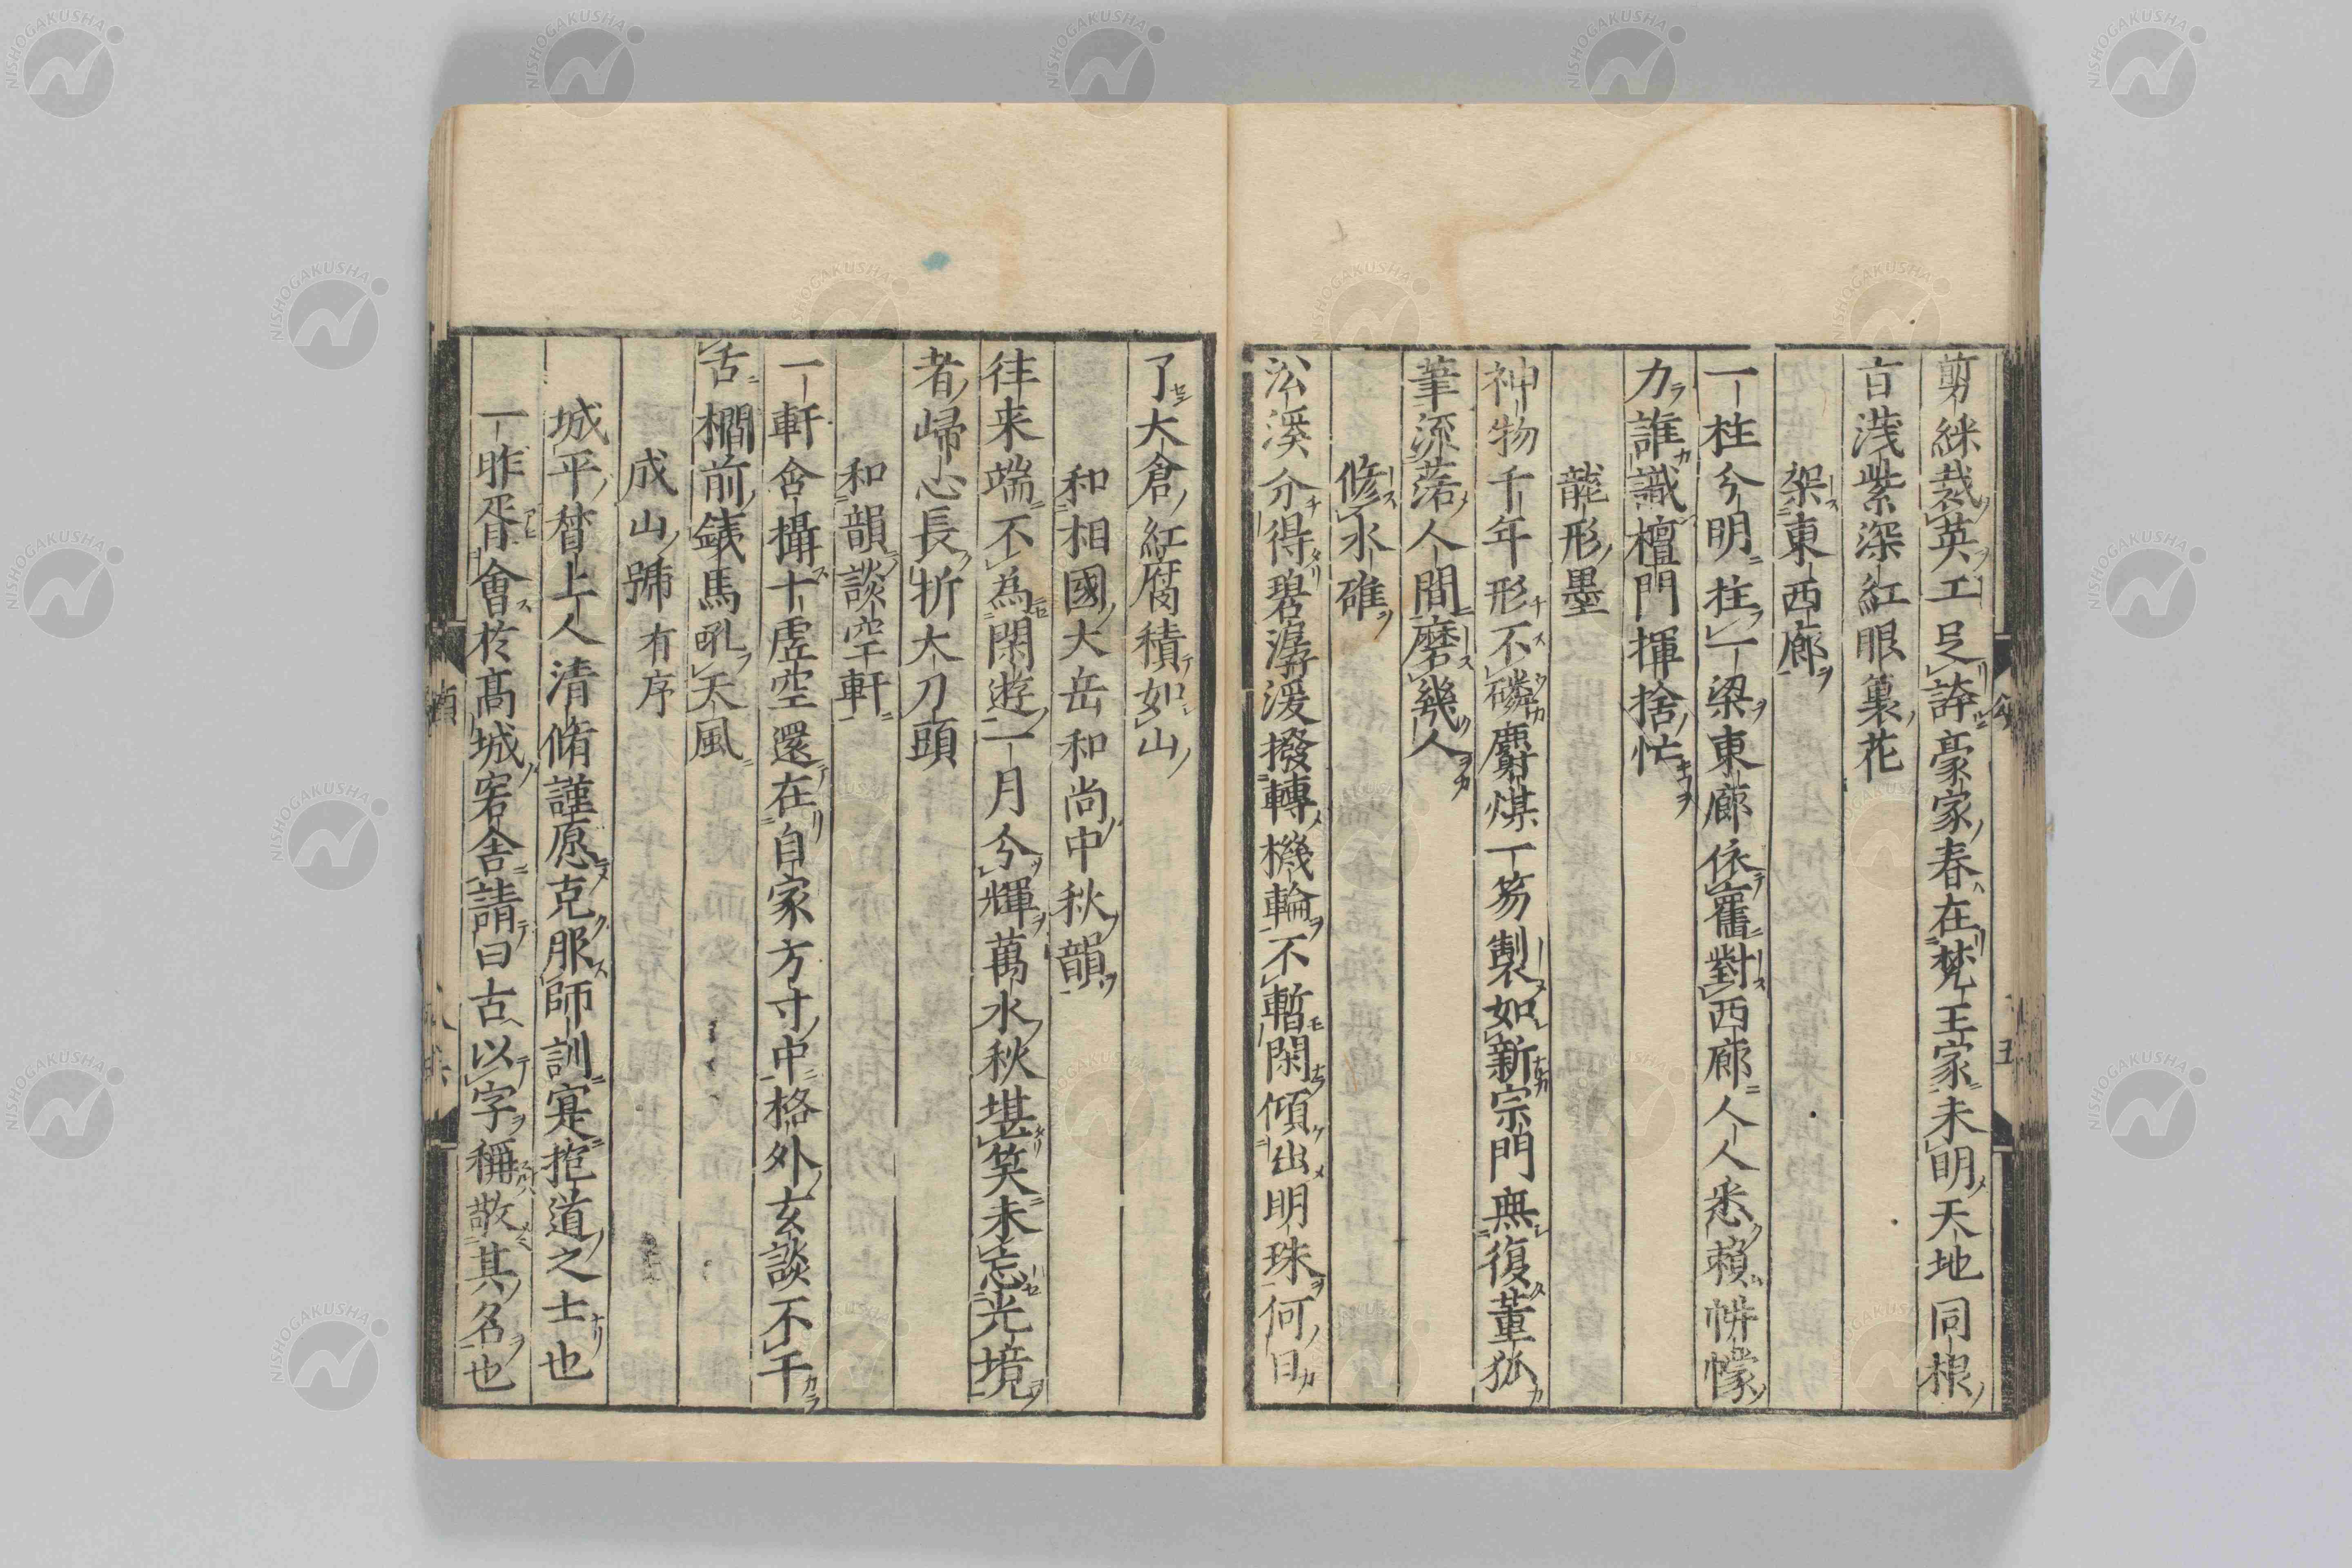 剪綵裁英工足誇豪家春在梵王家未明天地同根
旨淺紫深紅眼裏花
架東西廊
一柱分明柱一梁東廊依舊對西廊人人悉賴帡幪
力誰識檀門揮捨忙
龍形墨
神物千年形不磷麝煤一笏製如新宗門無復董狐
筆流落人間磨幾人
修水碓
溪分得碧潺湲撥轉機輪不暫閑傾出明珠何日
了大倉紅腐積如山
和相國大岳和尚中秋韻
往来端不為閑遊一月分輝萬水秋堪笑未忘光境
者歸心長折大刀頭
和韻談空軒
一軒含攝十虛空還在自家方寸中格外玄談不干
舌櫩前銕馬吼天風
成山號有序
城平督上人清脩謹愿克服師訓寔抱道之士也
一昨胥會於高城宿舍請曰古以字稱敬其名也
NISHOGAKUSHA